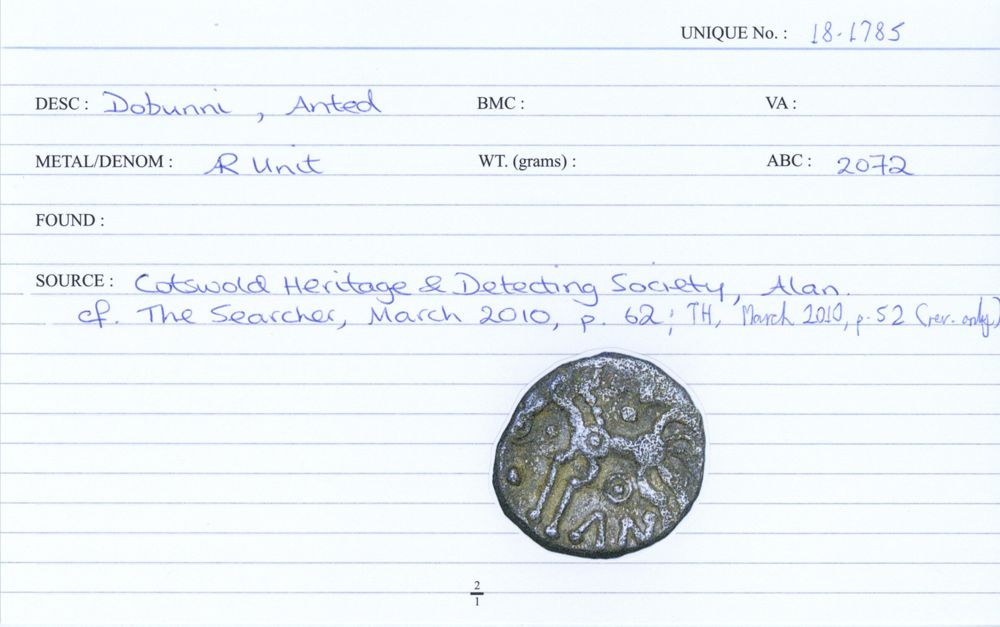 UNIQUE No. : 18-1785
DESC : Dobunni, Anted BMC : VA :
METAL/DENOM : AR Unit WT. (grams) : ABC : 2072
FOUND :
SOURCE : Cotswold Heritage & Detecting Society, Alan.
cf. The Searcher, March 2010, p. 62; TH, March 2010, p. 52 (rev. only)
AN
2
1